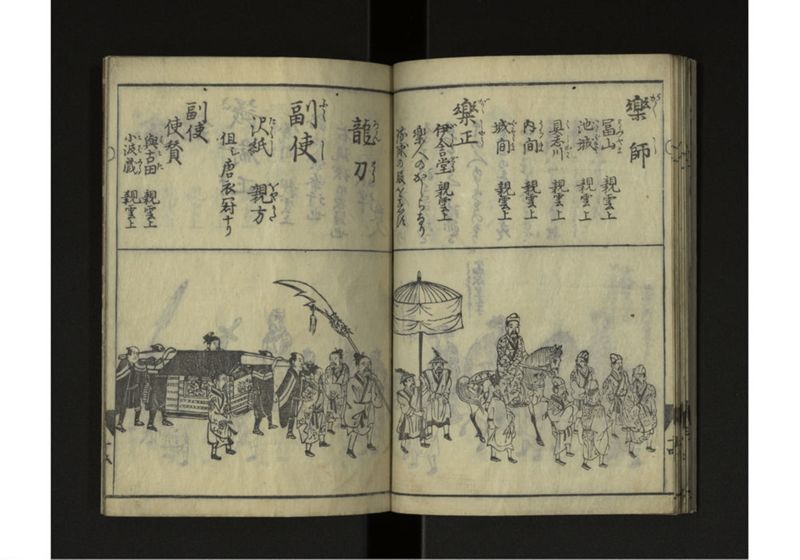 樂師
冨山 親雲上
池城 親雲上
具志川 親雲上
内間 親雲上
城間 親雲上
樂正
伊舎堂 親雲上
樂人のかしらなり
龍刀
副使
沢紙 親方
但し唐衣冠なり
副使
使賛
與古田 親雲上
小波蔵 親雲上